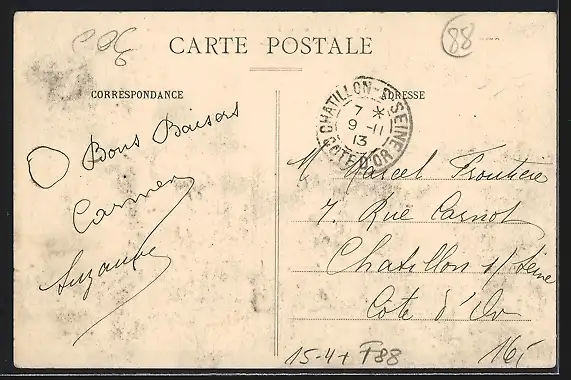 88
CARTE POSTALE
CORRESPONDANCE
ADRESSE
CHATILLON-S-SEINE
7 *
9-11
13
COTE D'OR
Bons Baisers
Carmen
Suzanne
M Marcel
7, Rue Carnot
Chatillon s/ Seine
Cote d'Or
15-4+ F88